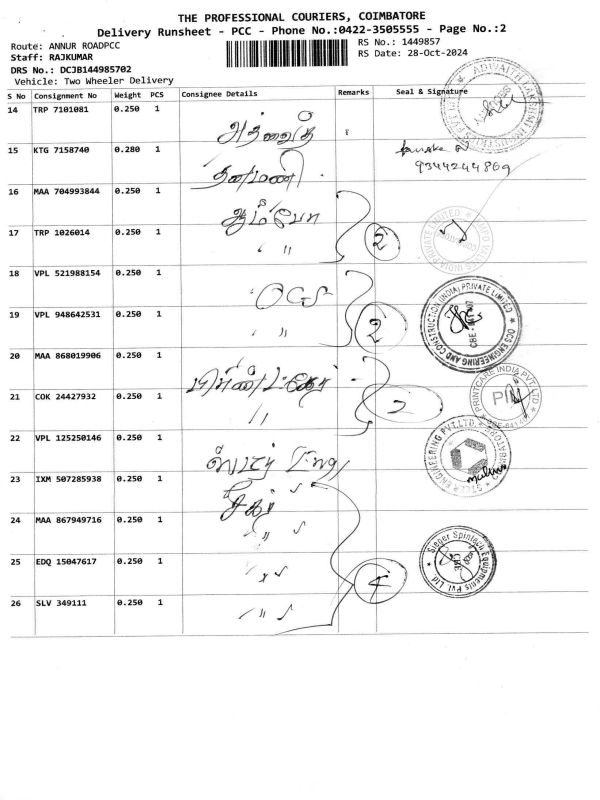 THE PROFESSIONAL COURIERS, COIMBATORE
Delivery Runsheet - PCC - Phone No.:0422-3505555 - Page No.:2
Route: ANNUR ROADPCC
RS No.: 1449857
Staff: RAJKUMAR
RS Date: 28-Oct-2024
DRS No.: DCJB144985702
Vehicle: Two Wheeler Delivery
S No Consignment No Weight PCS Consignee Details Remarks Seal & Signature
14 TRP 7101081 0.250 1
15 KTG 7158740 0.280 1 தனமணி
9344244869
16 MAA 704993844 0.250 1
17 TRP 1026014 0.250 1 " 2
18 VPL 521988154 0.250 1 OCS
OCS ENGINEERING AND CONSTRUCTION (INDIA) PRIVATE LIMITED
19 VPL 948642531 0.250 1 " 2
20 MAA 868019906 0.250 1
PRINTCARE INDIA PVT LTD
21 COK 24427932 0.250 1 " 2
22 VPL 125250146 0.250 1
ENGINEERING PVT.LTD.
23 IXM 507285938 0.250 1
24 MAA 867949716 0.250 1 "
25 EDQ 15047617 0.250 1 " 4
Sieger Spintech Equipments Pvt. Ltd
26 SLV 349111 0.250 1 "